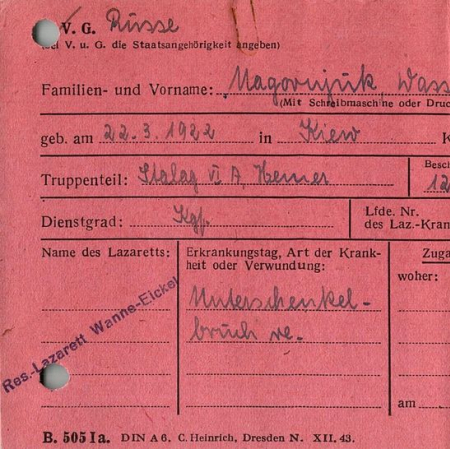 V. G. Russe
(bei V. u. G. die Staatsangehörigkeit angeben)
Familien- und Vorname: Nagornjuk, Wass
(Mit Schreibmaschine oder Druc
geb. am 22.3.1922 in Kiew K
Truppenteil: Stalag VI A, Hemer
Besch
12
Dienstgrad: Kgf.
Lfde. Nr.
des Laz.-Kran
Name des Lazaretts:
Res.-Lazarett Wanne-Eickel
Erkrankungstag, Art der Krank-
heit oder Verwundung:
Unterschenkel-
bruch re.
Zuga
woher:
am
B. 505 Ia. DIN A 6. C. Heinrich, Dresden N. XII. 43.